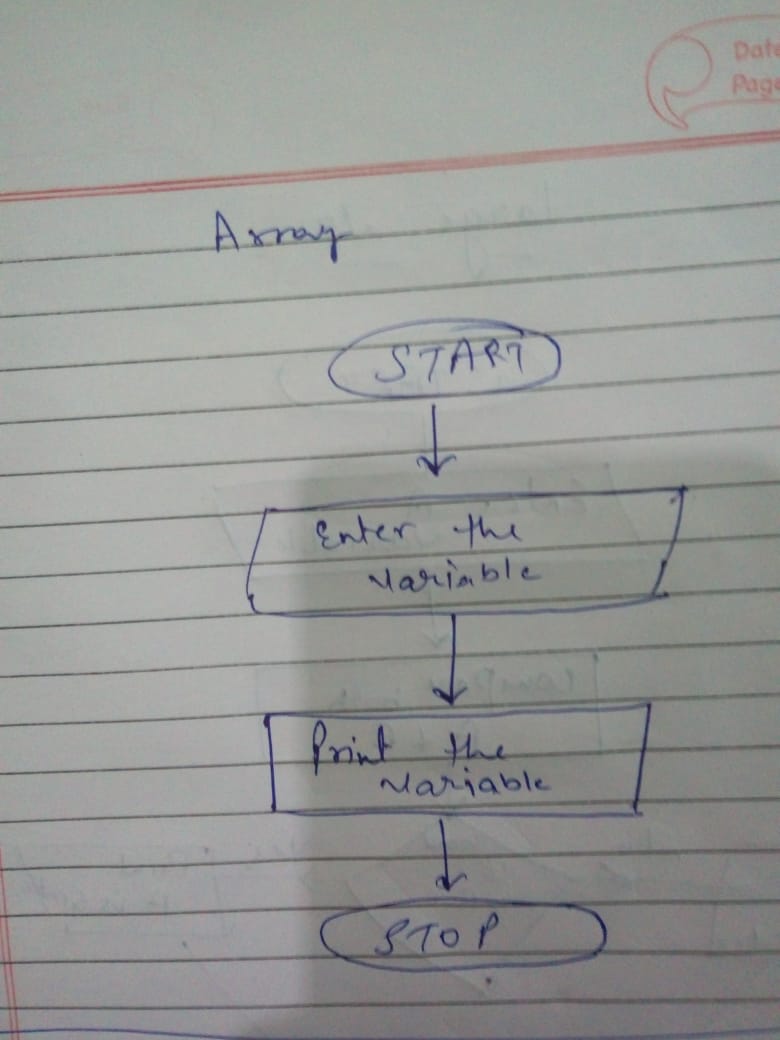 Date
Page
Array
START
Enter the
variable
Print the
variable
STOP